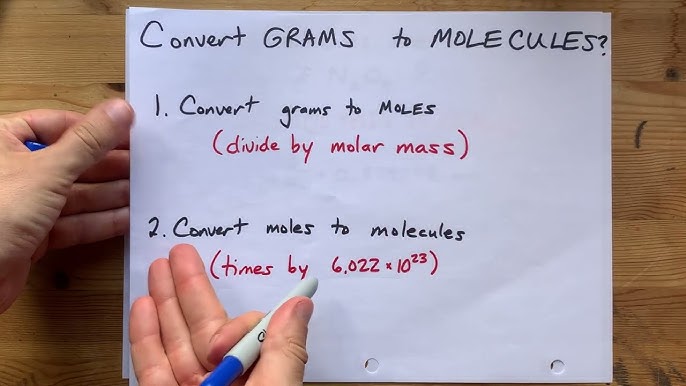 Convert GRAMS to MOLECULES?
1. Convert grams to MOLES
(divide by molar mass)
2. Convert moles to molecules
(times by 6.022 × 10²³)